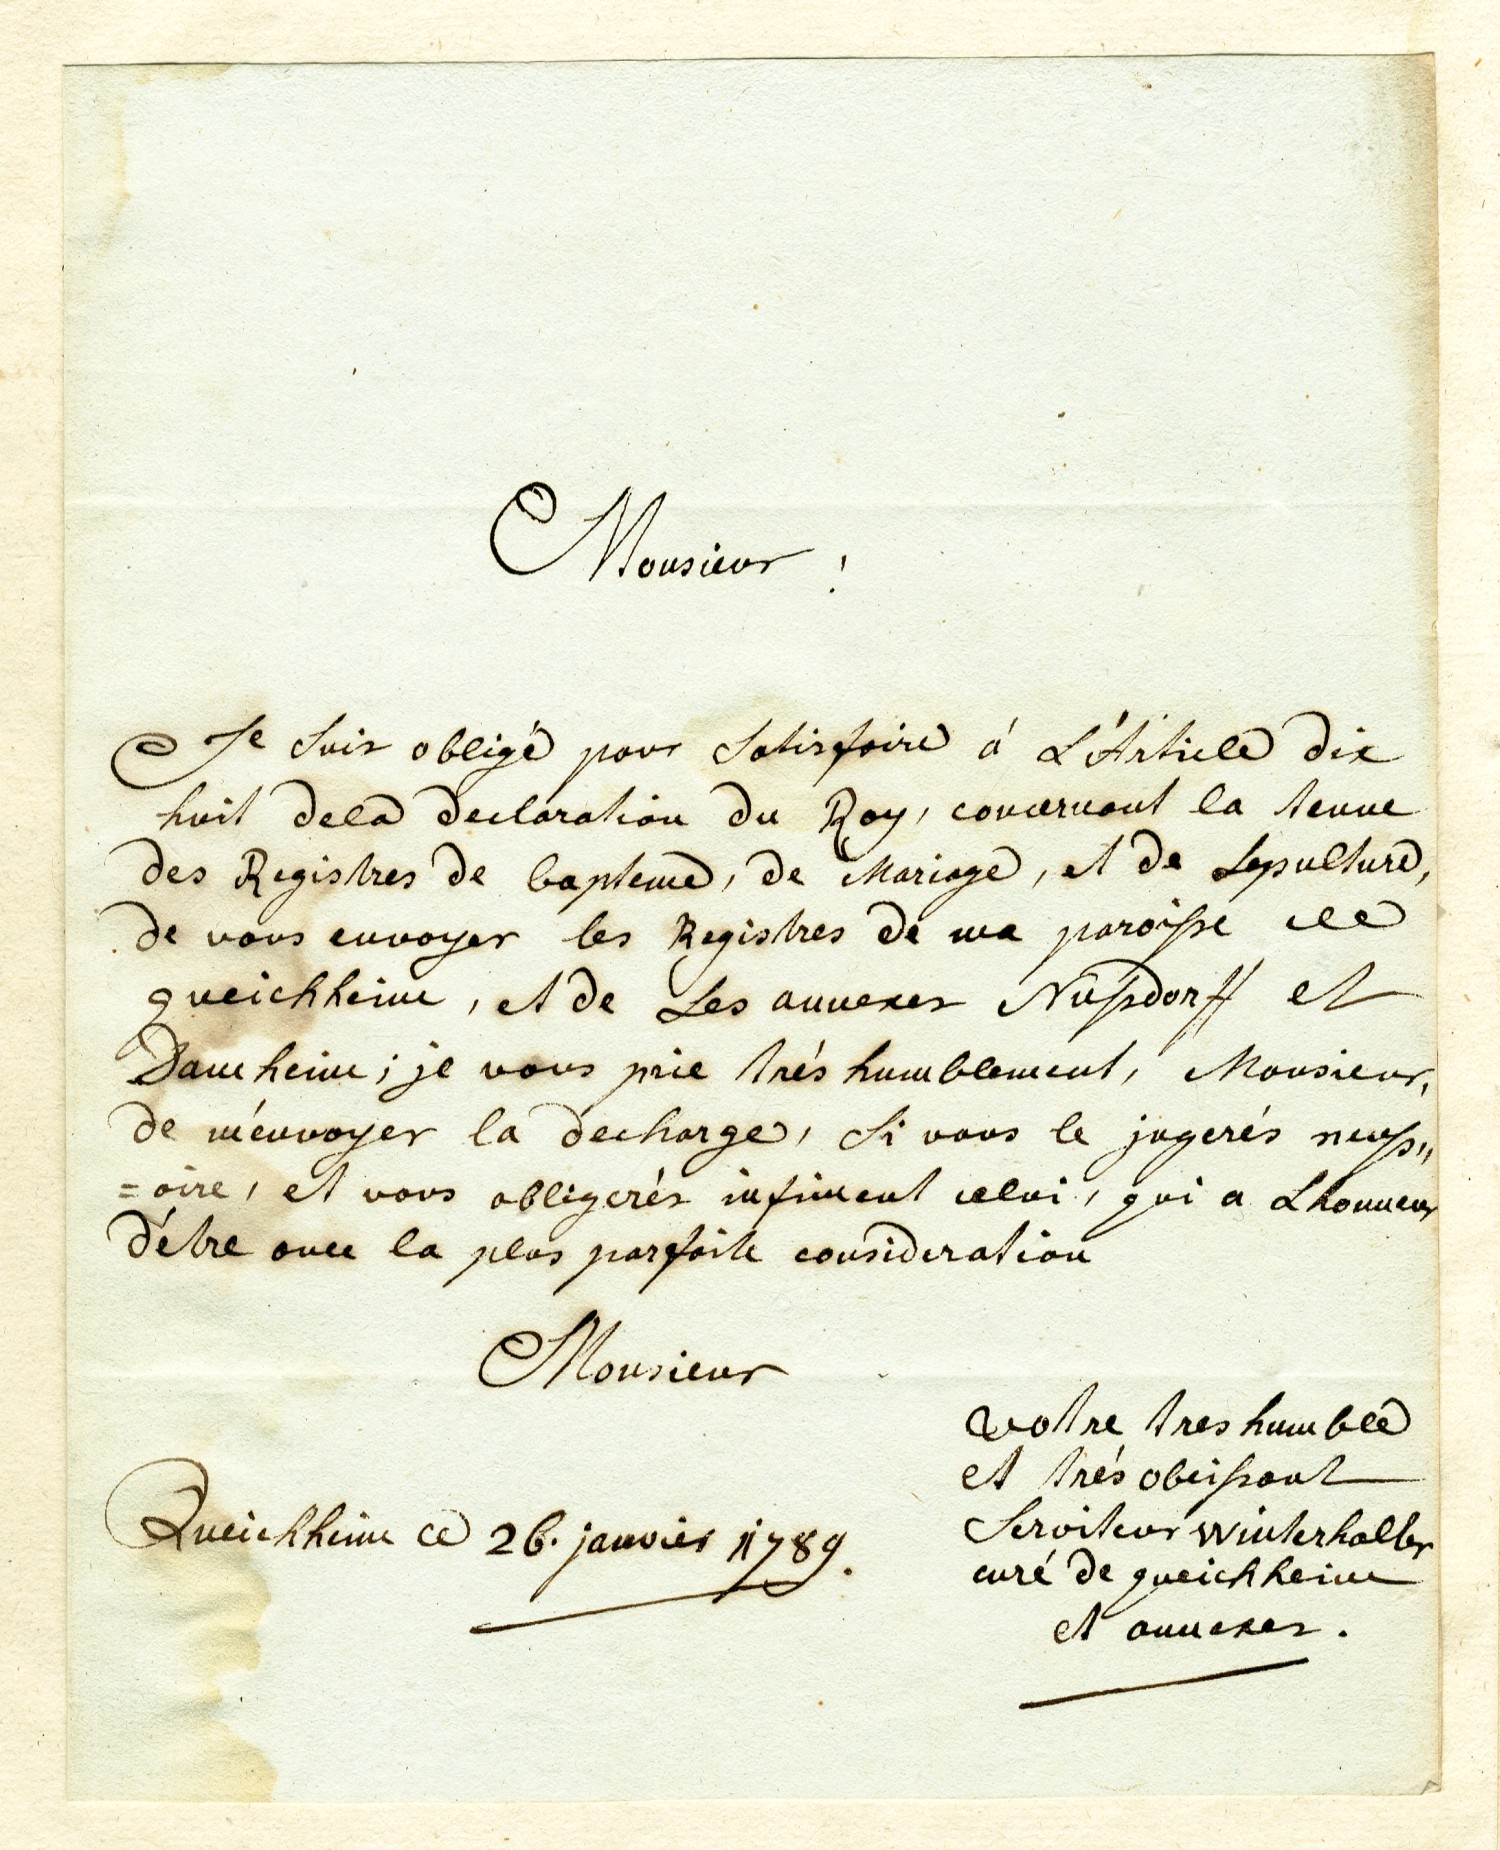 Monsieur !
Je suis obligé pour satisfaire á L'Article dix
huit dela declaration du Roy, concernant la tenue
des Registres de bapteme, de Mariage, et de Sepulture,
de vous envoyer les Registres de ma paroisse de
queichheim, et de Ses annexes Nusdorff et
Damheim; je vous prie trés humblement, Monsieur,
de m'envoyer la décharge, si vous le jugerés necess,,
=aire, et vous obligerés infiment celui, qui a L'honneur
d'étre avec la plus parfaite consideration
Monsieur
votre tres humble
et trés obeissant
Serviteur Winterhalter
curé de queichheim
et annexes.
Queichheim ce 26. janvier 1789.